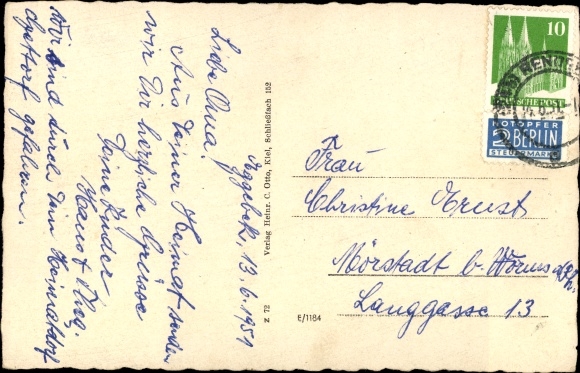 Eggebek, 13.6.1951
Liebe Oma!
Aus Deiner Heimat senden
wir Dir herzliche Grüsse
Deine Kinder
Hans + Ing.
Wir sind durch Dein Heimatdorf
gefahren.
Verlag Heinr. C. Otto, Kiel, Schließfach 152
Z 72
E/1184
10
DEUTSCHE POST
NOTOPFER
2 BERLIN
STEUERMARKE
Frau
Christine Ernst
Mörstadt b. Worms a/Rh.
Langgasse 13